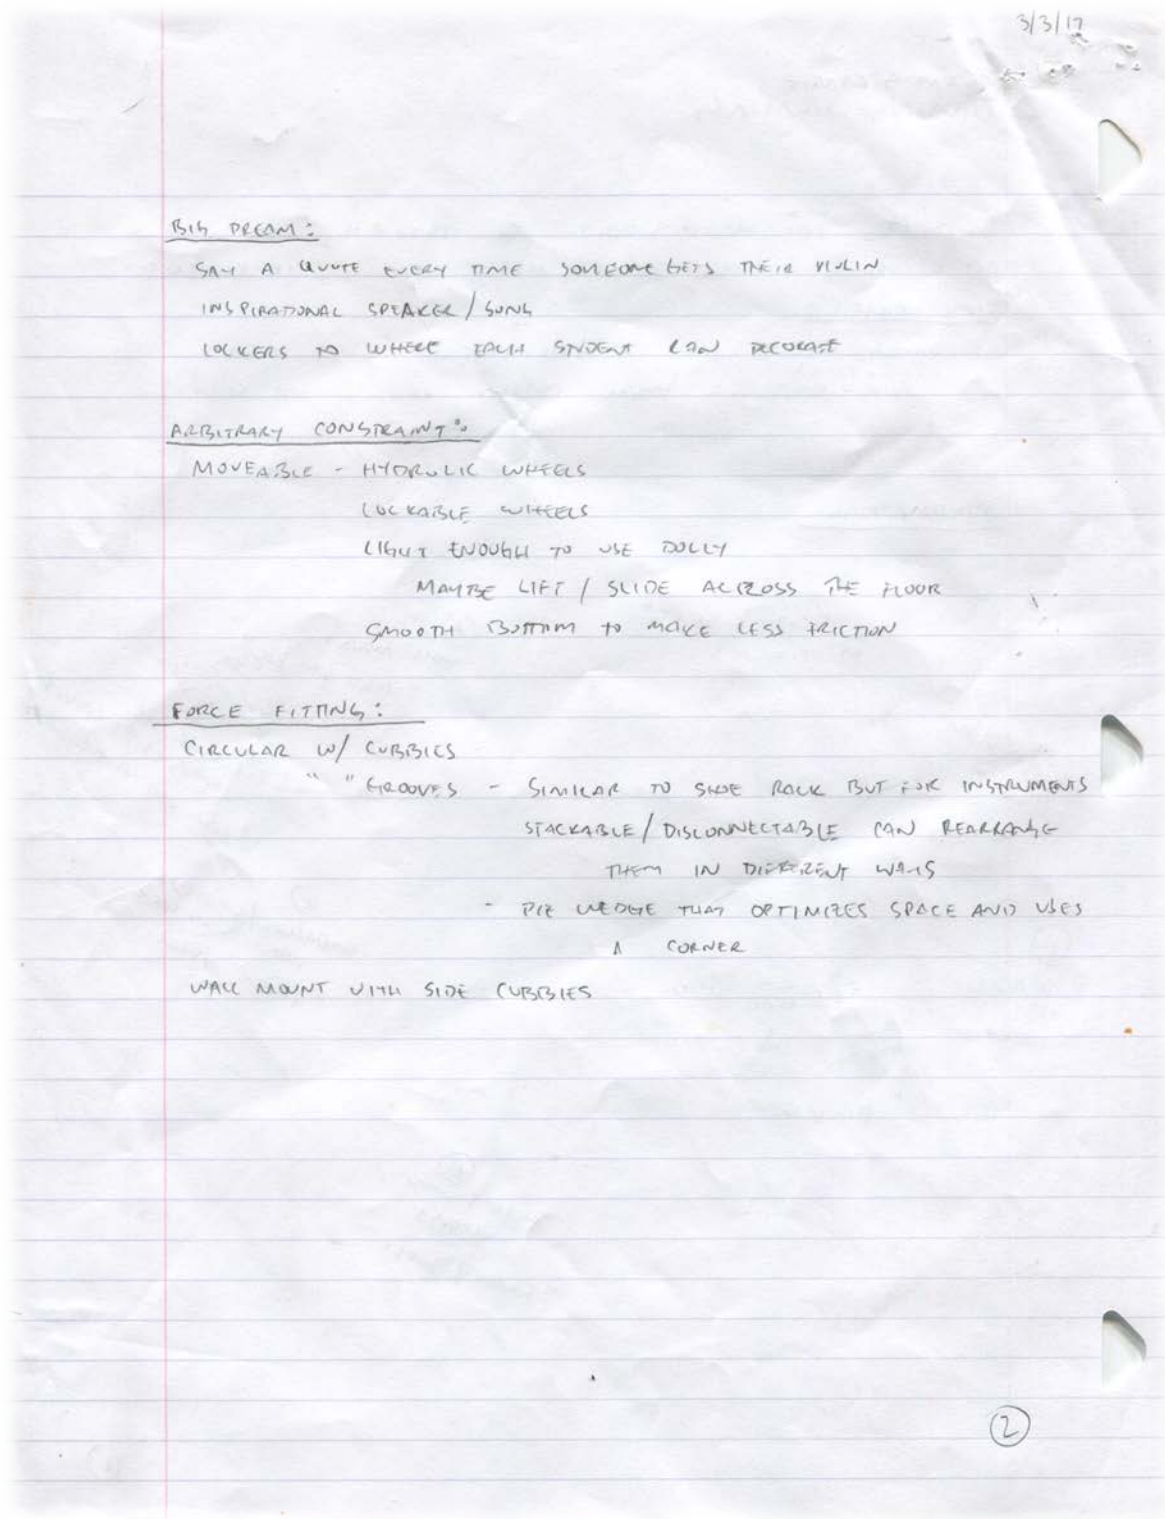 3/3/17
BIG DREAM:
SAY A QUOTE EVERY TIME SOMEONE GETS THEIR VIOLIN
INSPIRATIONAL SPEAKER/SONG
LOCKERS TO WHERE EACH STUDENT CAN DECORATE
ARBITRARY CONSTRAINT:
MOVEABLE - HYDROLIC WHEELS
LOCKABLE WHEELS
LIGHT ENOUGH TO USE DOLLY
MAYBE LIFT / SLIDE ACROSS THE FLOOR
SMOOTH BOTTOM TO MAKE LESS FRICTION
FORCE FITTING:
CIRCULAR W/ CUBBIES
" " GROOVES - SIMILAR TO SHOE RACK BUT FOR INSTRUMENTS
STACKABLE/DISCONNECTABLE CAN REARRANGE
THEM IN DIFFERENT WAYS
- PIE WEDGE THAT OPTIMIZES SPACE AND USES
A CORNER
WALL MOUNT WITH SIDE CUBBIES
2